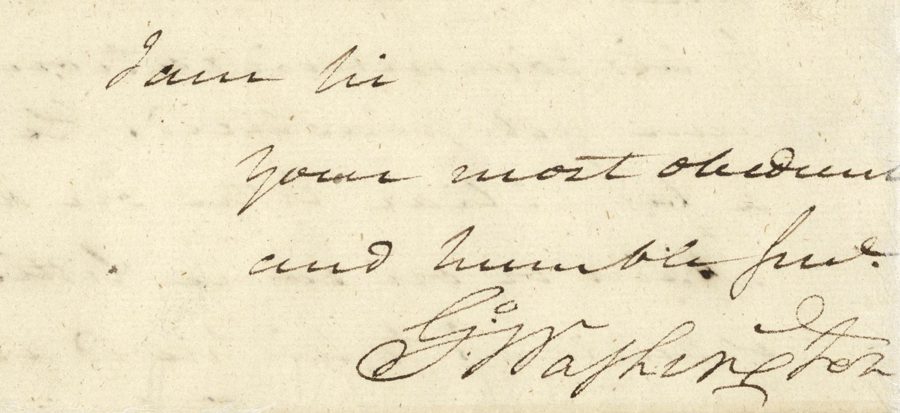 I am Sir
Your most obedient
and humble Servt.
Go. Washington